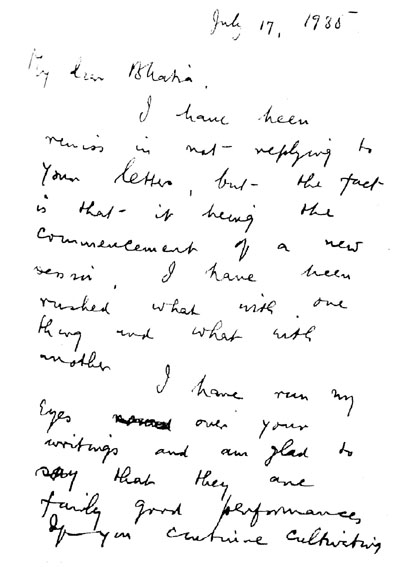 July 17, 1935
My dear Bhatia,
I have been
remiss in not replying to
your letter, but the fact
is that it being the
commencement of a new
session, I have been
rushed what with one
thing and what with
another
I have run my
Eyes over your
writings and am glad to
say that they are
fairly good performances
If you continue cultivating